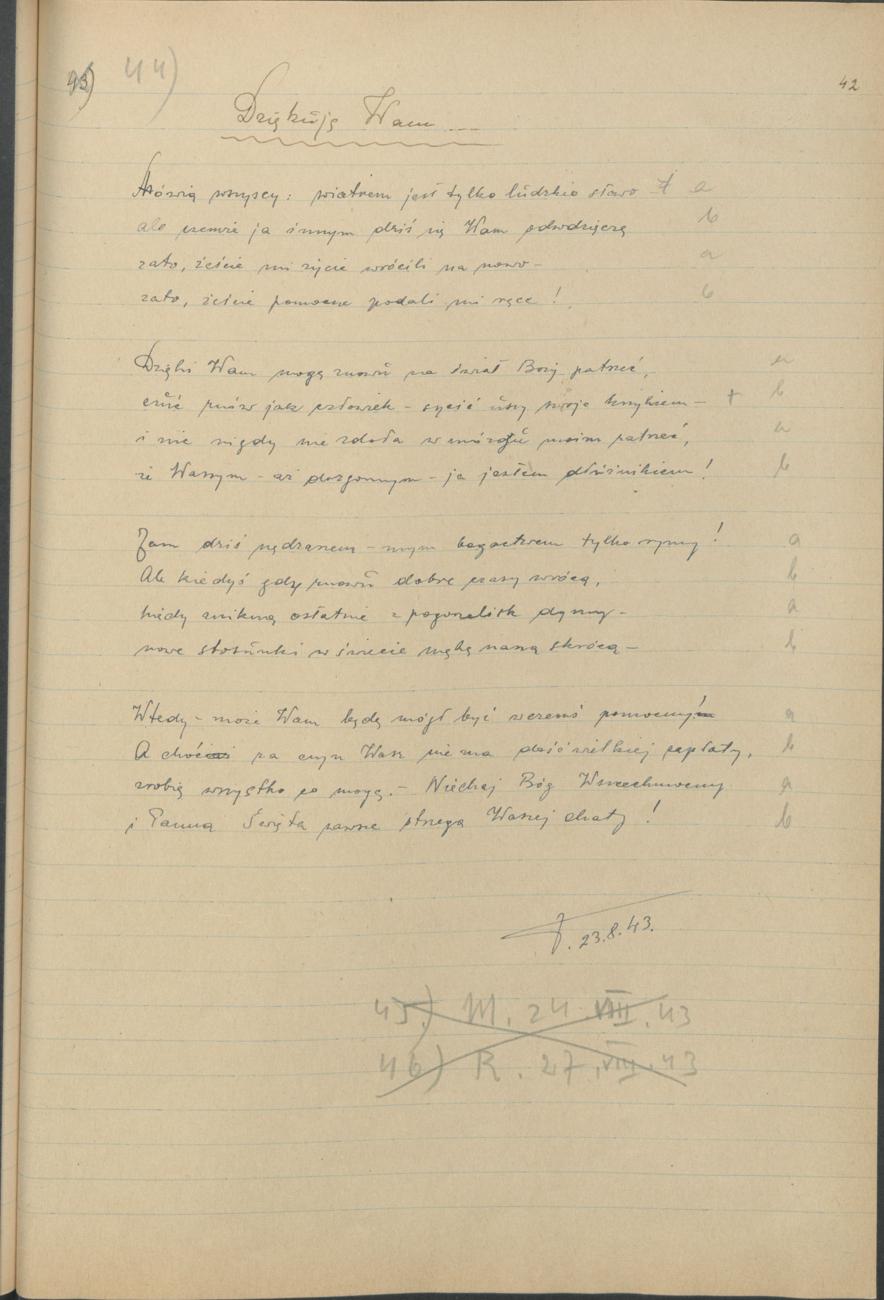 43) 44) 42
Dziękuję Wam ...
Mówią wszyscy: wiatrem jest tylko ludzkie słowo ł a
ale czemże ja innym dziś się Wam odwdzięczę b
zato, żeście mi życie wrócili na nowo - a
zato, żeście pomocne podali mi ręce! b
Dzięki Wam mogę znowu na świat Boży patrzeć, a
czuć znów jak człowiek - sycić uszy swoje krzykiem - + b
i nic nigdy nie zdoła w mózgu moim zatrzeć, a
że Waszym - aż dozgonnym - ja jestem dłużnikiem! b
Jam dziś nędzarzem - mym bogactwem tylko rymy! a
Ale kiedyś gdy znowu dobre czasy wrócą, b
kiedy znikną ostatnie z pogorzelisk dymy - a
nowe stosunki w świecie mękę naszą skrócą - b
Wtedy - może Wam będę mógł być w czemś pomocny a
A choć za czyn Wasz nie ma dość wielkiej zapłaty, b
zrobię wszystko co mogę. - Niechaj Bóg Wszechmocny a
i Panna Święta zawsze strzega Waszej chaty! b
J. 23.8.43.
45) M. 24.VIII.43
46) R. 27.VIII.43